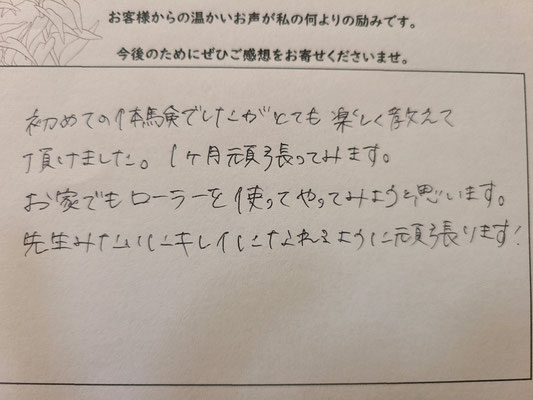 お客様からの温かいお声が私の何よりの励みです。
今後のためにぜひご感想をお寄せくださいませ。
初めての体験でしたがとても楽しく教えて
頂けました。1ヶ月頑張ってみます。
お家でもローラーを使ってやってみようと思います。
先生みたいにキレイになれるように頑張ります!